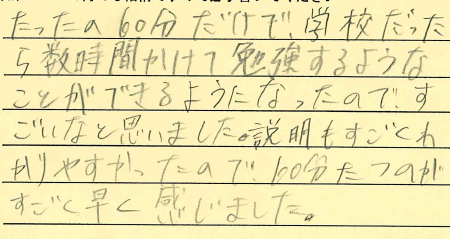 たったの60分だけで、学校だった
ら数時間かけて勉強するような
ことができるようになったので、す
ごいなと思いました。説明もすごくわ
かりやすかったので、60分たつのが
すごく早く感じました。